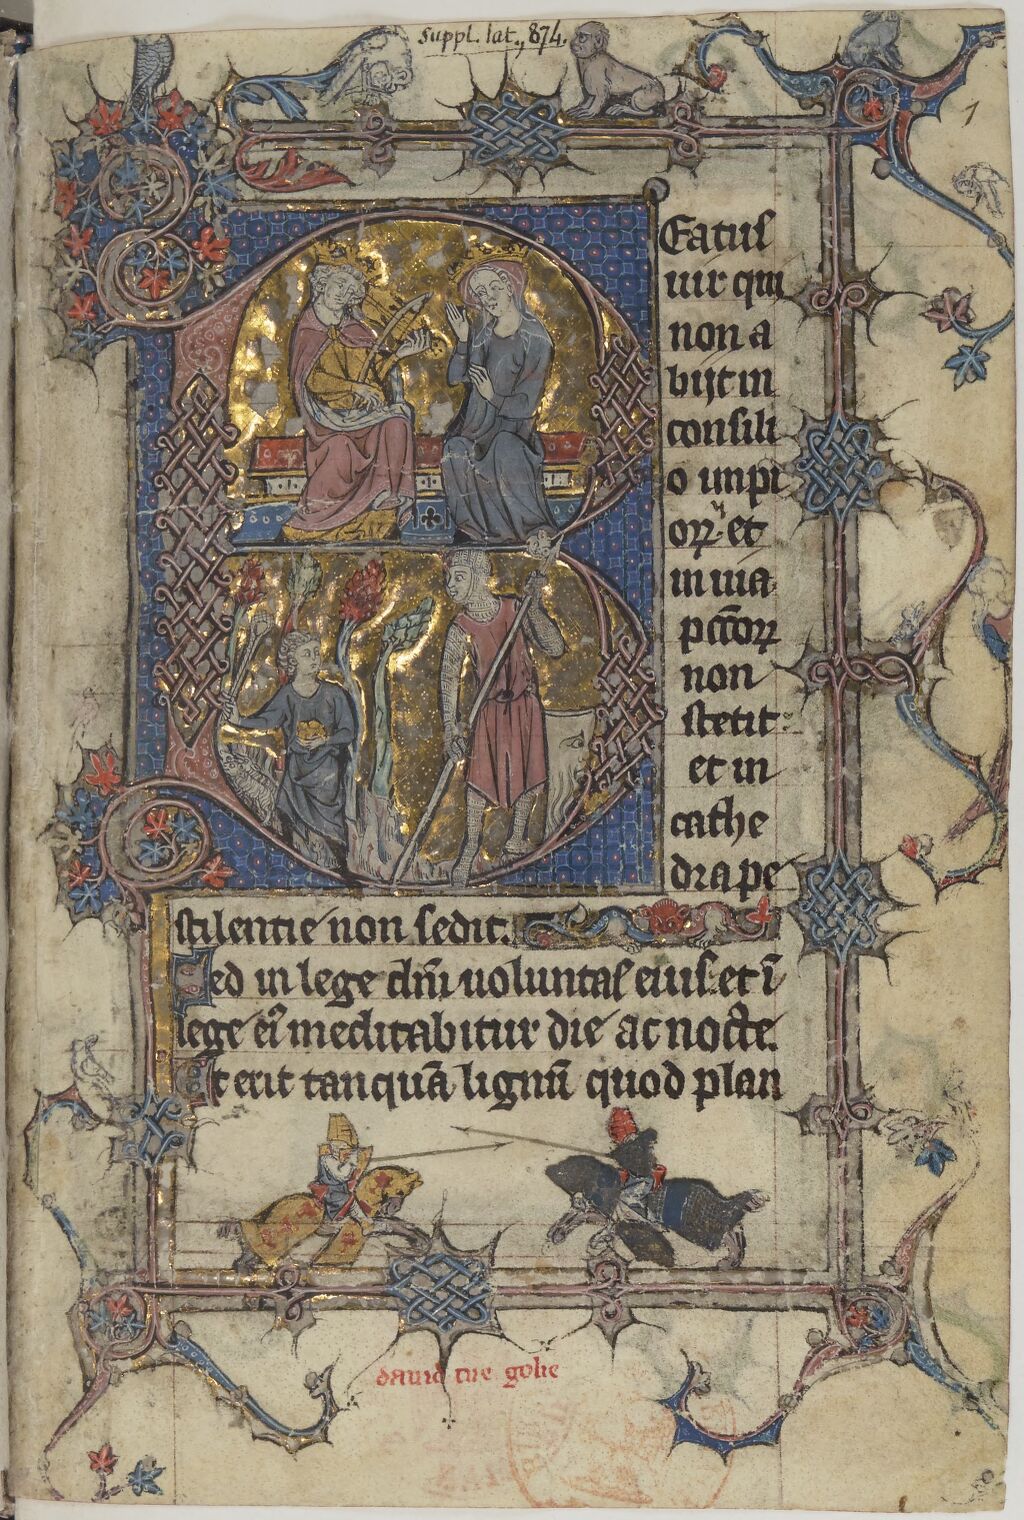 suppl. lat., 874.
1
Eatus
uir qui
non a
bijt in
consili
o impi
oꝝ et
in uia
pcc̄oꝝ
non
stetit
et in
cathe
dra pe
stilentie non sedit.
Sed in lege dn̄i uoluntas eius et ī
lege ei᷒ meditabitur die ac nocte.
Et erit tanquā lignū quod plan
dauid tue golie